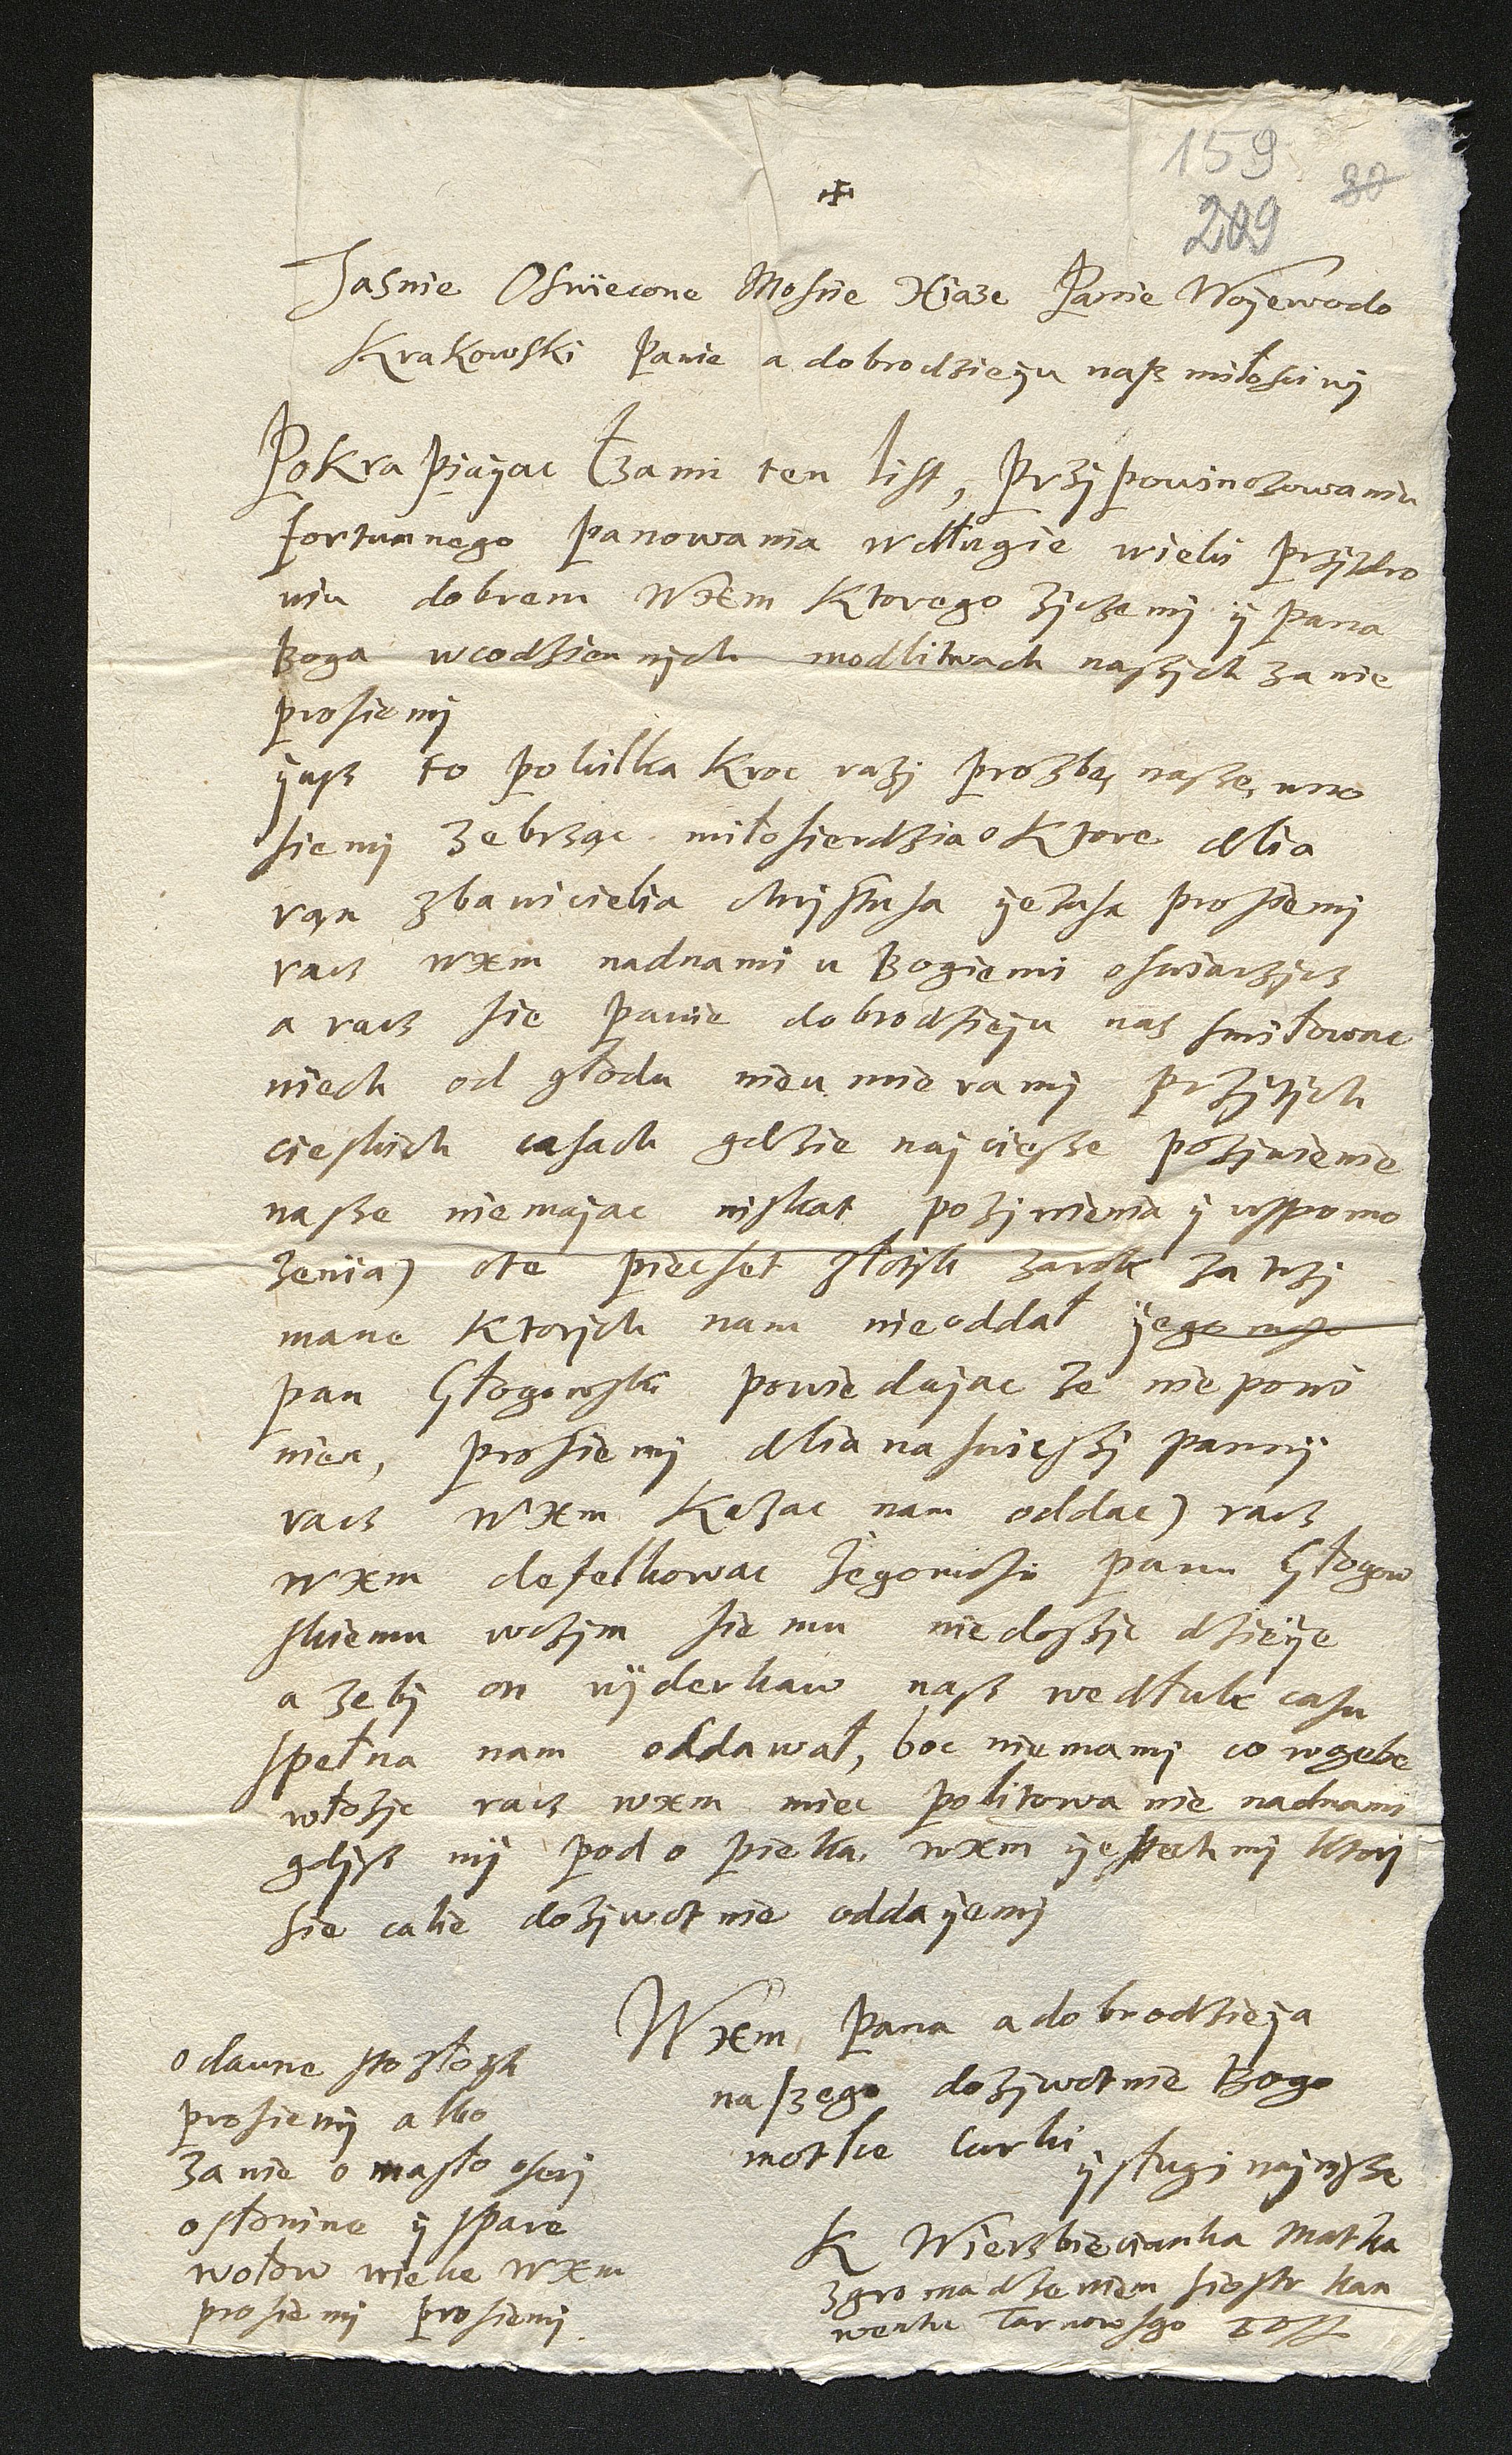 159
80
209
✠
Jasnie Oswiecone Mosne Xiaze Panie Woyewodo
Krakowski Panie a dobrodzieyu nasz miłosciwy
Pokrapiayac łzami ten list, przy powinszowaniu
fortunnego panowania w długie wieki przy zdro
wiu dobrem WXEm Ktorego zyczemy y pana
Boga w codziennych modlitwach naszych za nie
prosiemy
yusz to po kilka kroc razy prozbę naszę, wno
siemy zebrząc miłosierdzia o Ktore dlia
ran zbawicielia chrystusa yezusa prosiemy
racz wxm nad nami ubogiemi oswiaczycz
a racz sie panie dobrodzieyu nas smiłowac
niech od głodu nieumieramy przy tych
cieskich casach gdzie najciesze pozywienie
nasze niemajac niskat pozywienia y wspomo
zenia) o te piecset złotych zarok zatrzy
mane Ktorych nam nieoddał yego mosc
pan Głogowski powiedajac ze nie powi
nien, prosiemy dlia naswieszy panny
racz wxm Kazac nam oddac) racz
wxm defelkowac Jegomosci panu Głogow
skiemu wczym sie mu niedoszyc dzieye
a zeby on wyderkaw nasz wedłuk casu
spełna nam oddawał, boc niemamy co w gebe
włozyc racz wxm miec politowanie nadnami
gdysz my pod opieka wxm yestechmy ktory
sie calie dozywotnie oddayemy
WXEm Pana a dobrodzieja
naszego dozywotnie Bogo
motlce Curki y sługi najnisze
K Wierzbiecianka Matka
zgromadzeniem siostr kon
wentu Tarnowsgo
o dawne sto złotych
prosiemy albo
za nie o masło o sery
o słonine y spare
wołow wielce wxm
prosiemy prosiemy